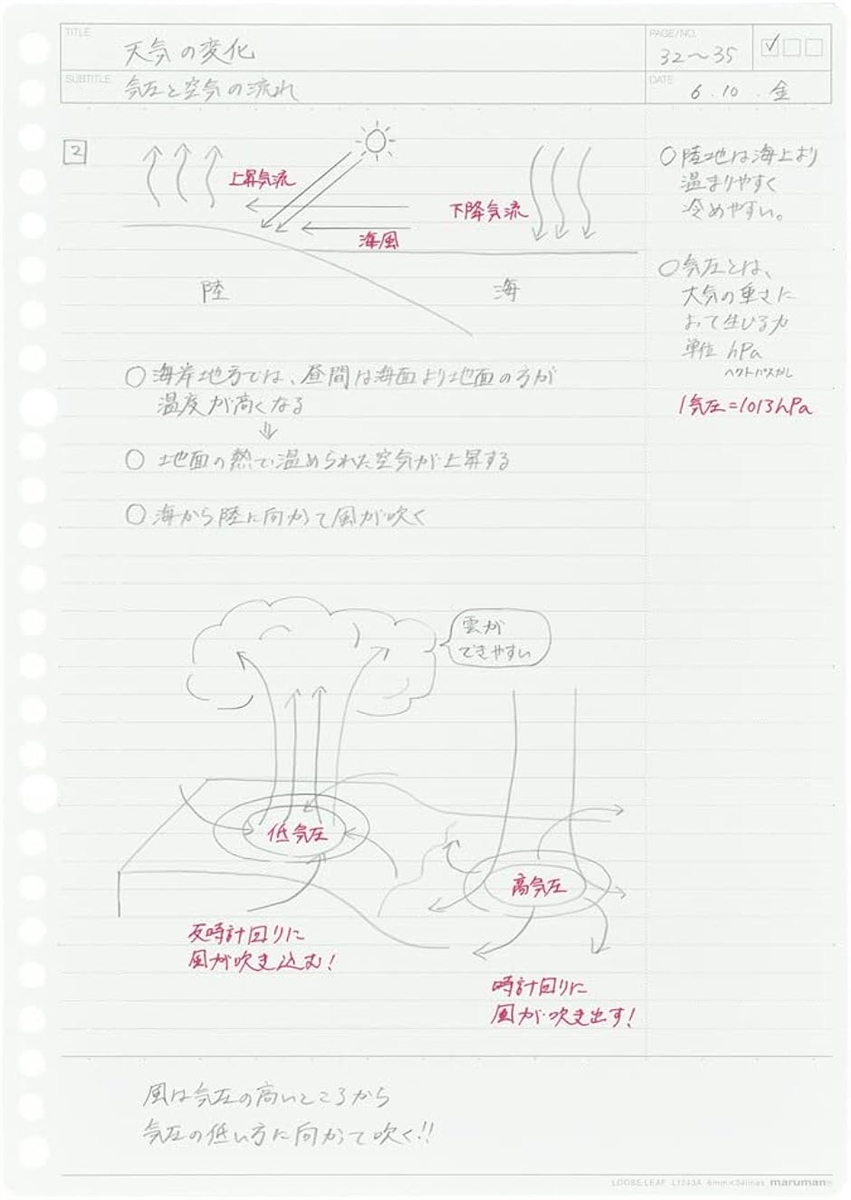 TITLE
天気の変化
PAGE/NO.
32〜35
SUBTITLE
気圧と空気の流れ
DATE
6.10.金
2
上昇気流
下降気流
海風
陸
海
○海岸地方では、昼間は海面より地面の方が
温度が高くなる
⇓
○ 地面の熱で温められた空気が上昇する
○海から陸に向かって風が吹く
雲が
できやすい
低気圧
高気圧
反時計回りに
風が吹き込む!
時計回りに
風が吹き出す!
○陸地は海上より
温まりやすく
冷めやすい。
○気圧とは、
大気の重さに
よって生じる力
単位 hPa
ヘクトパスカル
1気圧=1013hPa
風は気圧の高いところから
気圧の低い方に向かって吹く!!
LOOSE LEAF L1243A 6mm×34lines maruman